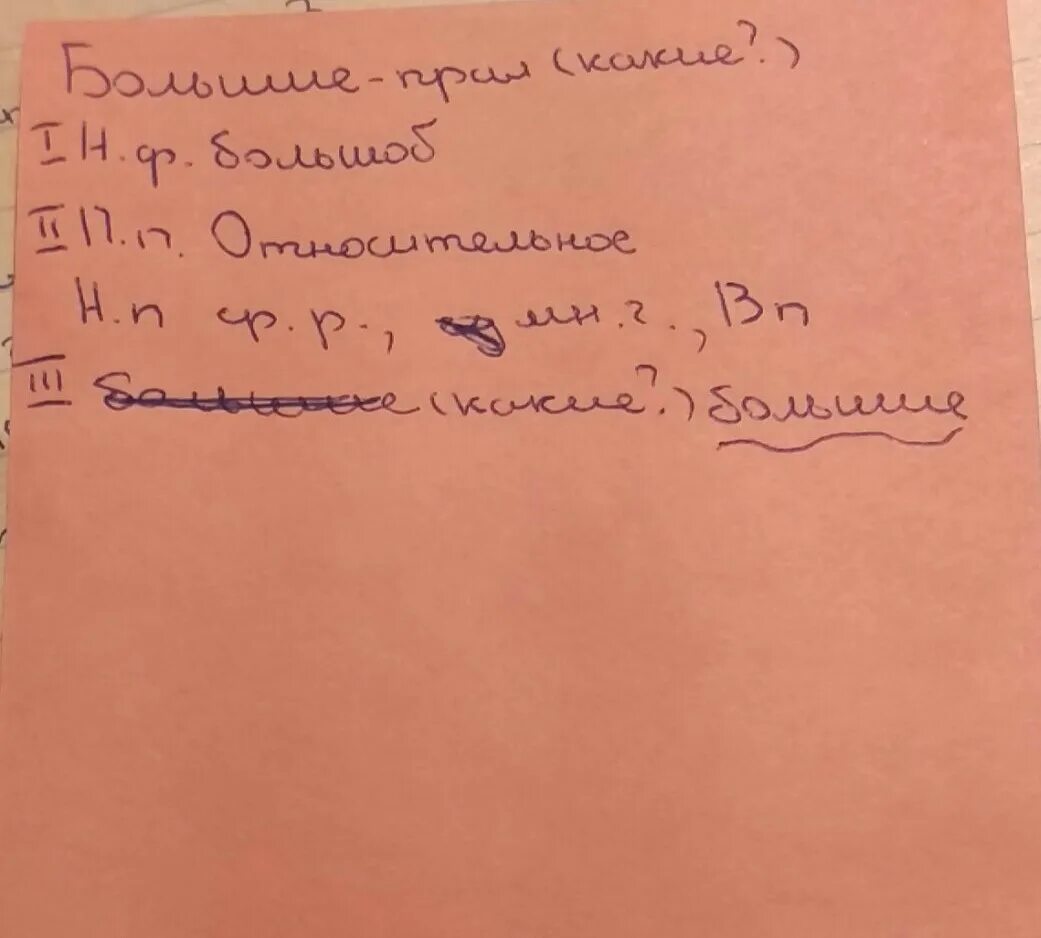 Большие - прил (какие?)
I Н.ф. большой
II П.п. Относительное
Н.п ф.р., мн.г., Вп
III больше (какие?) большие